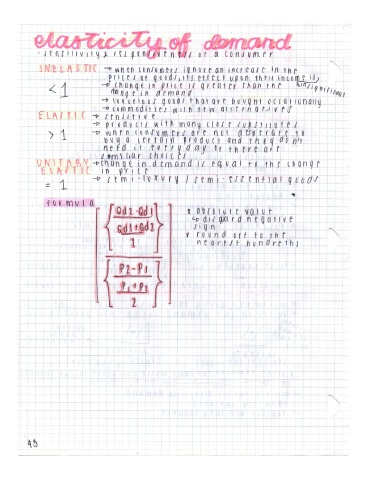 elasticity of demand
- sensitivity & responsiveness of a consumer
INELASTIC → when consumers ignore an increase in the
prices of goods, its effect upon their income is insignificant
< 1 → change in price is greater than the
change in demand
→ luxurious goods that are bought occasionally
→ commodities with few alternatives
ELASTIC → sensitive
→ products with many close substitutes
> 1 → when consumers are not desperate to
buy a certain product and they don't
need it every day or there are
similar choices
UNITARY ELASTIC → change in demand is equal to the change
in price
= 1 → semi-luxury / semi-essential goods
formula
Qd2 - Qd1
Qd1 + Qd2
2
P2 - P1
P1 + P2
2
* absolute value
↳ disgard negative
sign
* round off to the
nearest hundredths